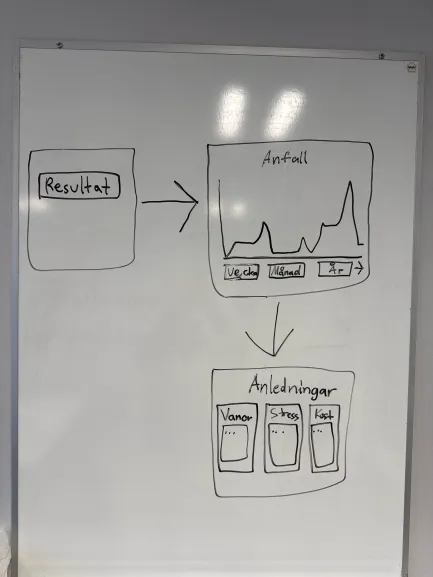 Resultat
Anfall
Vecka Månad År
Anledningar
Vanor Stress Kost
... ... ...